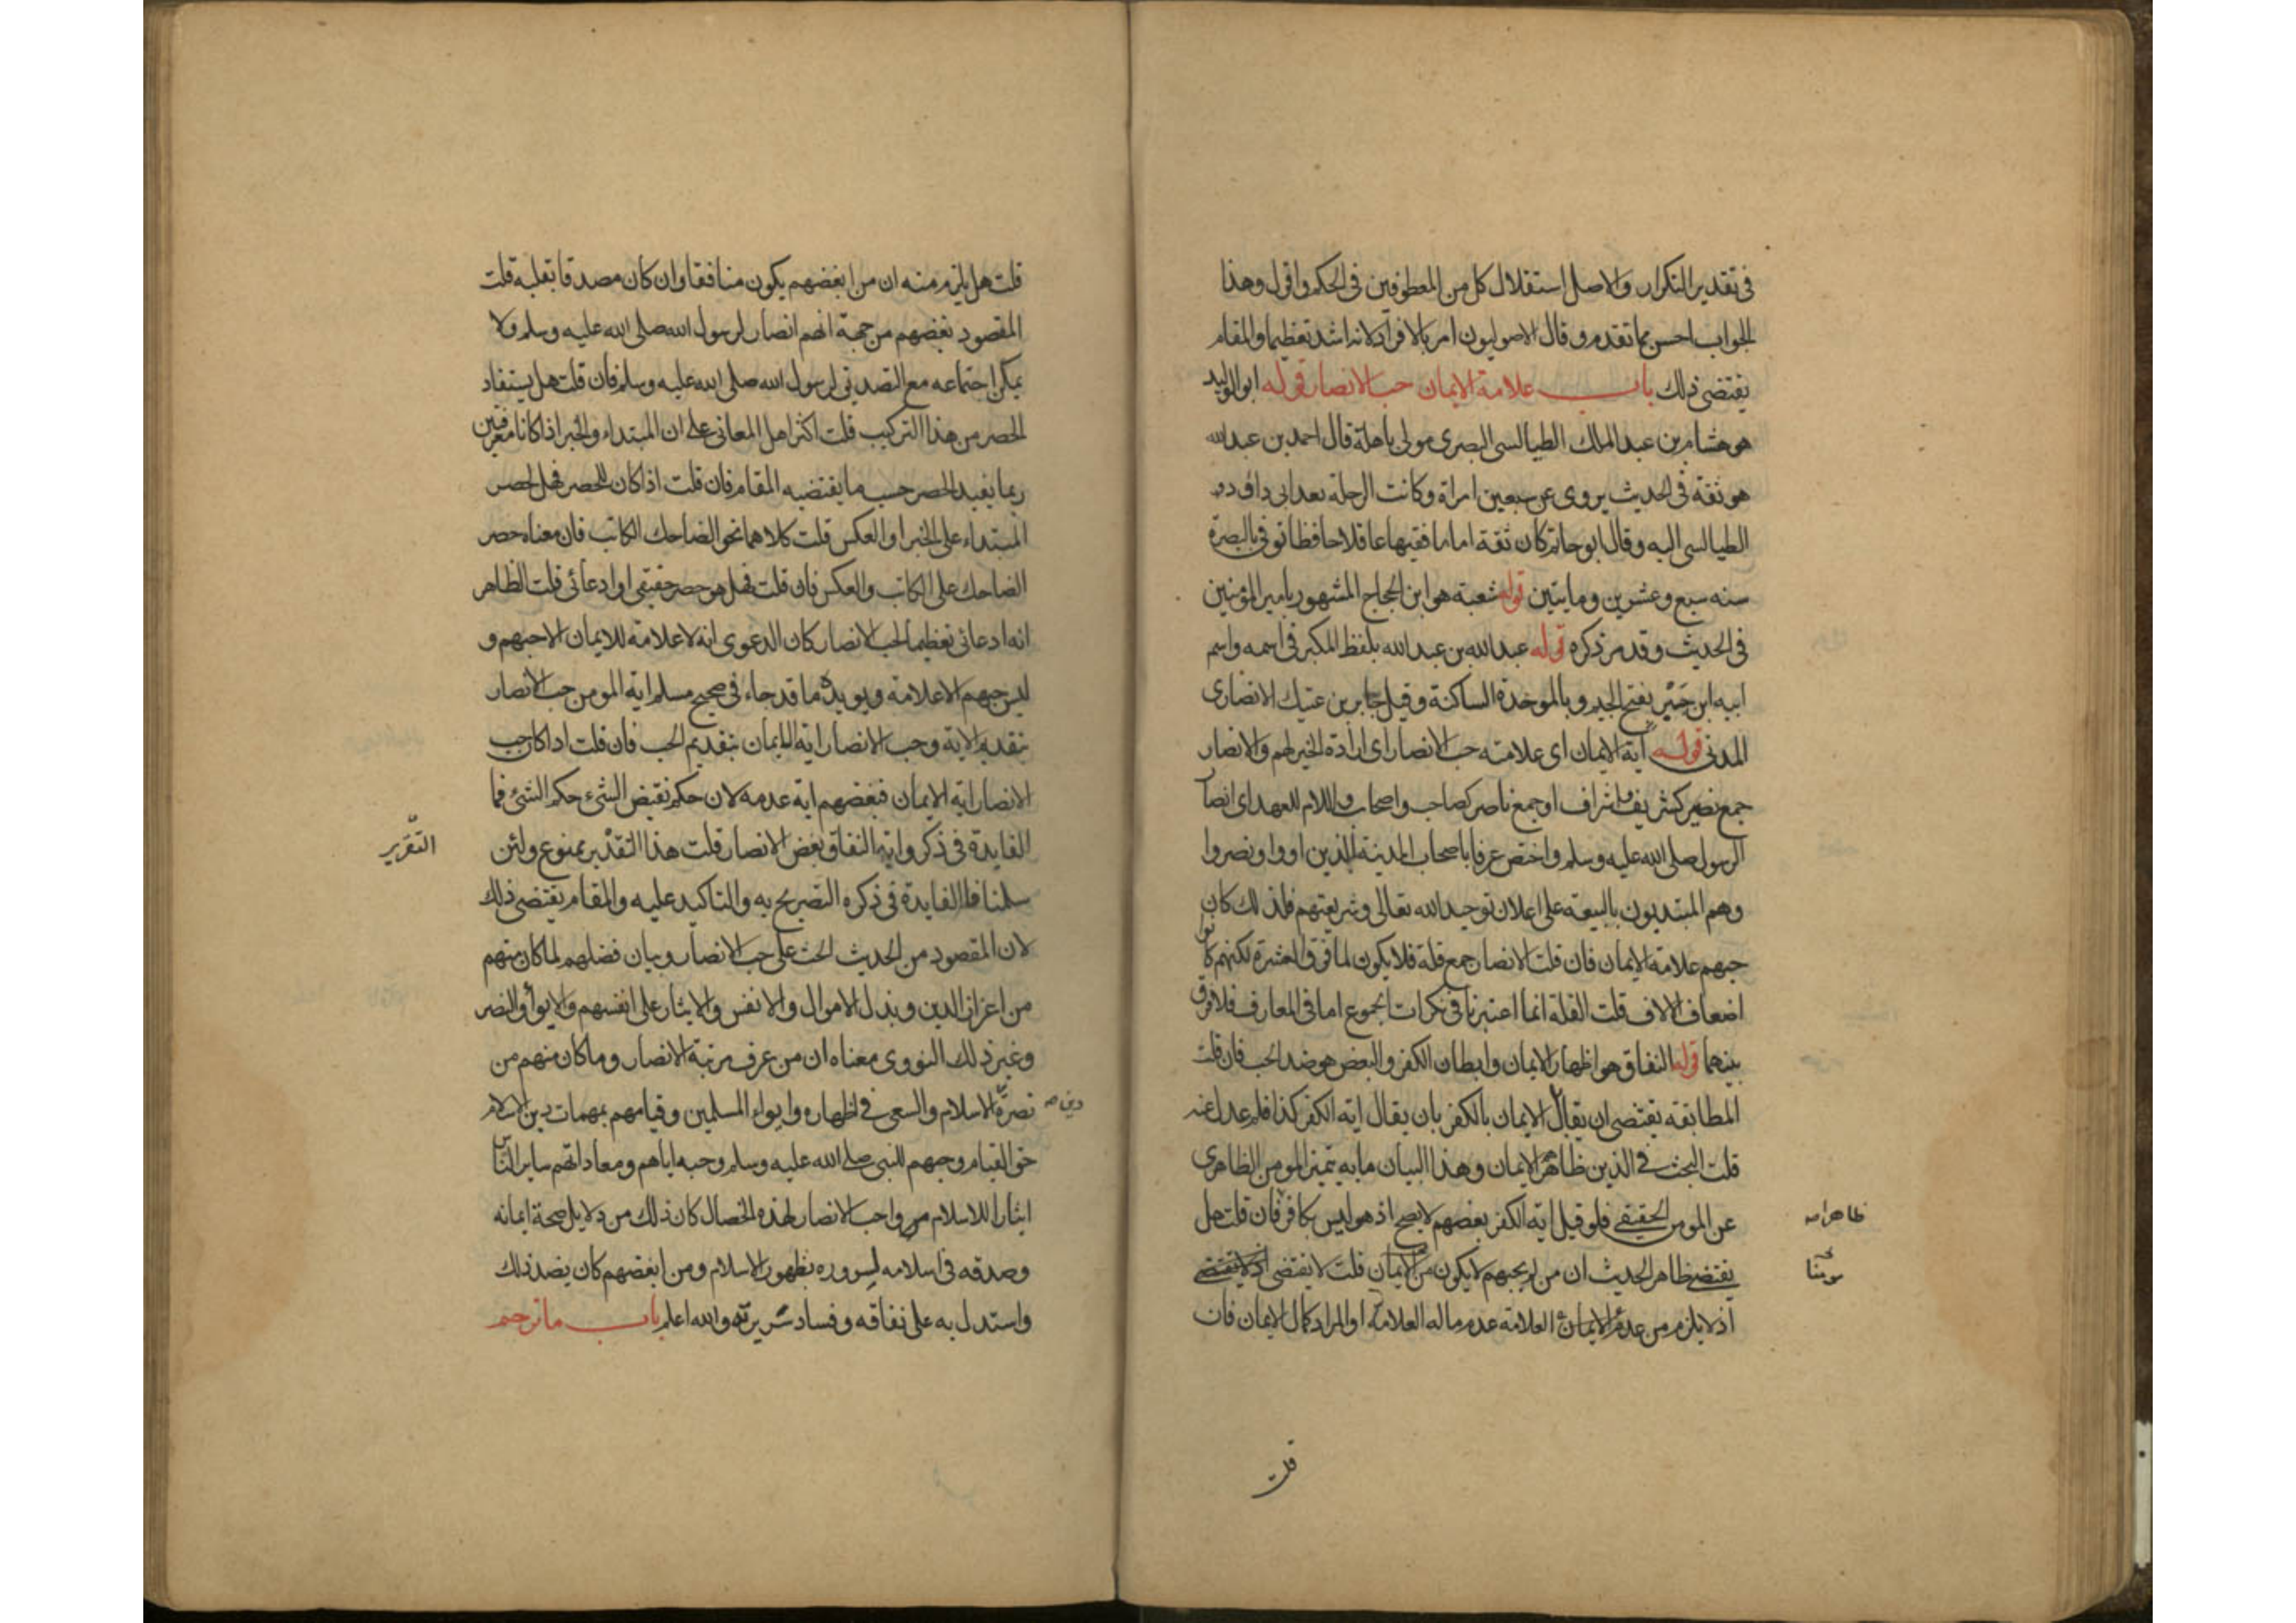 في تقدير التكرار والاصل استقلال كل من المعطوفين في الحكم واقول وهذا
الجواب احسن مما تقدم وقال الاصوليون امر بالافراد لانه اشد تعظيما والمقام
يقتضي ذلك باب علامة الايمان حب الانصار قوله ابو الوليد
هو هشام بن عبد الملك الطيالسي البصري مولى باهلة قال احمد بن عبد الله
هو ثقة في الحديث يروي عن سبعين امراة وكانت الرحلة بعد ابي داود
الطيالسي اليه وقال ابو حاتم كان ثقة اماما فقيها عاقلا حافظا توفي بالبصرة
سنه سبع وعشرين ومايتين قوله شعبة هو ابن الحجاج المشهور بامير المؤمنين
في الحديث وقد مر ذكره قوله عبد الله بن عبد الله بلفظ المكبر في اسمه واسم
ابيه ابن جبر بفتح الجيم وبالموحدة الساكنة وقيل جابر بن عتيك الانصاري
المدني قوله آية الايمان اي علامته حب الانصار اي ارادة الخير لهم والانصار
جمع نصير كشريف واشراف او جمع ناصر كصاحب واصحاب واللام للعهد اي انصار
الرسول صلى الله عليه وسلم واختص عرفا باصحاب المدينة الذين اووا ونصروا
وهم المبتديون بالبيعة على اعلان توحيد الله تعالى وشريعتهم فلذلك كان
حبهم علامة الايمان فان قلت الانصار جمع قلة فلا يكون لما فوق العشرة لكنهم كانوا
اضعاف الالاف قلت القلة انما اعتبرنا في نكرات الجموع اما في المعارف فلا فرق
بينهما قوله النفاق هو اظهار الايمان وابطان الكفر والبغض هو ضد الحب فان قلت
المطابقة يقتضي ان يقال الايمان بالكفر بان يقال اية الكفر كذا فلم عدل عنه
قلت البحث في الذين ظاهرهم الايمان وهذا البيان ما به يتميز المومن الظاهري
عن المومن الحقيقي فلو قيل اية الكفر بغضهم لا يصح اذ هو ليس بكافر فان قلت هل
ظاهرا صح
يقتضي ظاهر الحديث ان من لم يحبهم لا يكون من الايمان قلت لا يقتضي اذ لا يقتضي
مومنا
اذ لا يلزم من عدم الايمان العلامة عدم ما له العلامة او المراد كمال الايمان فان
قلت
قلت هل يلزم منه ان من ابغضهم يكون منافقا وان كان مصدقا بقلبه قلت
المقصود بغضهم من جهة انهم انصار لرسول الله صلى الله عليه وسلم ولا
يمكن اجتماعه مع التصديق لرسول الله صلى الله عليه وسلم فان قلت هل يستفاد
الحصر من هذا التركيب قلت اكثر اهل المعاني على ان المبتداء والخبر اذا كانا معرفتين
ربما يفيد الحصر حسب ما يقتضيه المقام فان قلت اذا كان للحصر فهل لحصر
المبتداء على الخبر او العكس قلت كلاهما نحو الضاحك الكاتب فان معناه حصر
الضاحك على الكاتب والعكس فان قلت فهل هو حصر حقيقي او ادعائي قلت الظاهر
انه ادعائي تعظيما لحب الانصار كان الدعوى انه لا علامة للايمان الا حبهم و
ليس حبهم الا علامة ويويده ما قد جاء في صحيح مسلم اية المومن حب الانصار
بتقديم الاية وحب الانصار اية الايمان بتقديم الحب فان قلت اذا كان حب
الانصار اية الايمان فبغضهم اية عدمه لان حكم نقيض الشيء حكم الشيء فما
الفايدة في ذكر واية النفاق بغض الانصار قلت هذا التقدير ممنوع ولئن
التقرير
سلمنا فالفايدة في ذكره التصريح به والتاكيد عليه والمقام يقتضي ذلك
لان المقصود من الحديث الحث على حب الانصار وبيان فضلهم لما كان منهم
من اعزاز الدين وبذل الاموال والانفس والايثار على انفسهم والايواء والنصر
وغير ذلك النووي معناه ان من عرف مرتبة الانصار وما كان منهم من
نصرة الاسلام والسعي في اظهاره وايواء المسلمين وقيامهم بمهمات دين الاسلام
دين صح
حق القيام وحبهم للنبي صلى الله عليه وسلم وحبه اياهم ومعاداتهم ساير الناس
ايثارا للاسلام واحب الانصار لهذه الخصال كان ذلك من دلايل صحة ايمانه
وصدقه في اسلامه لسروره بظهور الاسلام ومن ابغضهم كان بضد ذلك
واستدل به على نفاقه وفساد سريرته والله اعلم باب ما ترجم